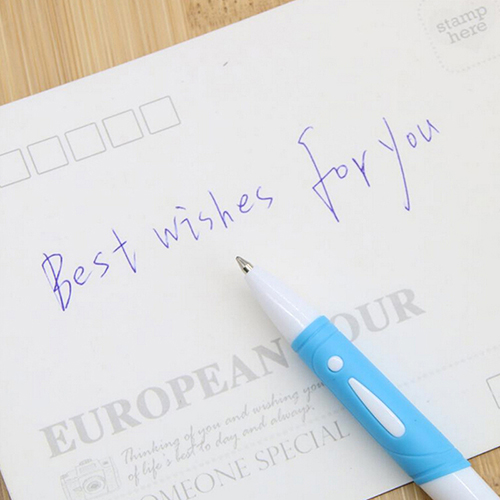 stamp
here
Best wishes for you
EUROPEAN TOUR
Thinking of you and wishing you
of life's best to day and always.
SOMEONE SPECIAL